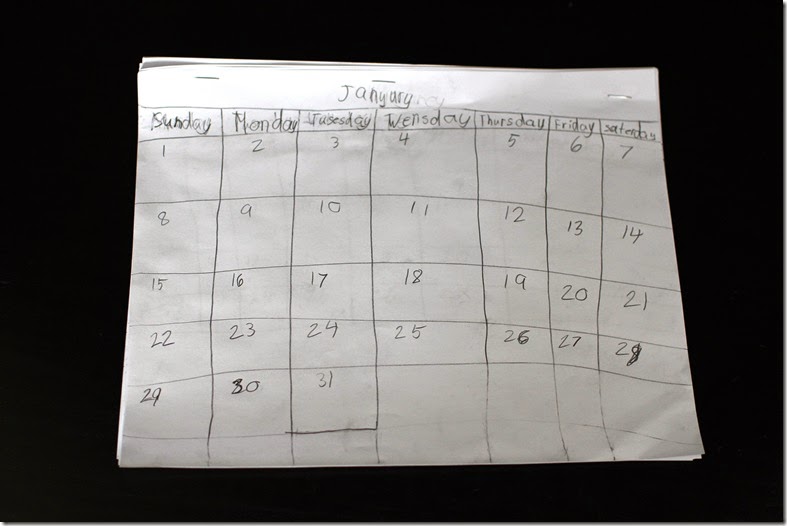 Janyary
Sunday Monday Tusesday Wensday Thursday Friday Saterday
1 2 3 4 5 6 7
8 9 10 11 12 13 14
15 16 17 18 19 20 21
22 23 24 25 26 27 28
29 30 31